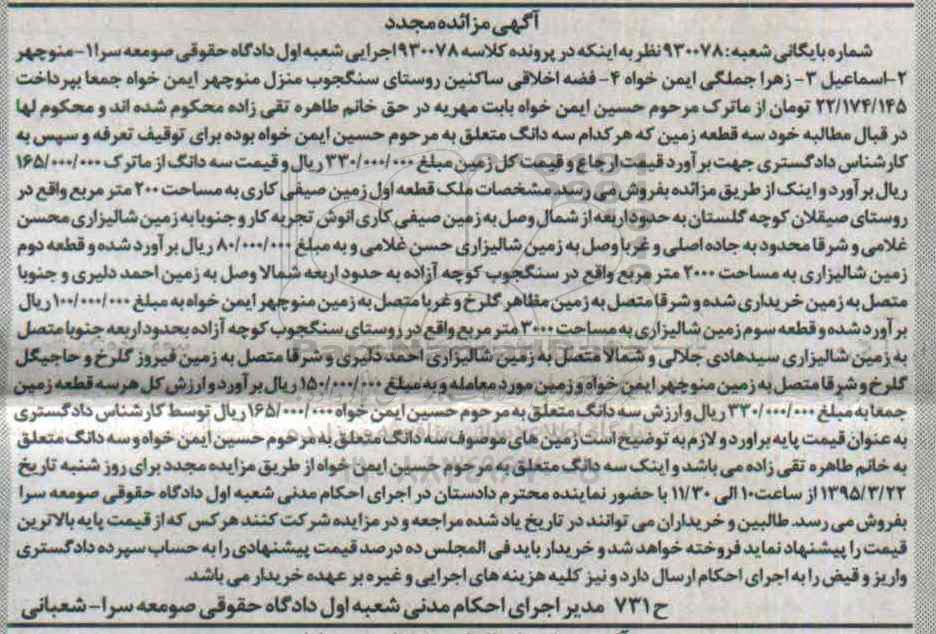 آگهی مزائده مجدد
شماره بایگانی شعبه: ۹۳۰۰۷۸ نظر به اینکه در پرونده کلاسه ۹۳۰۰۷۸ اجرایی شعبه اول دادگاه حقوقی صومعه سرا ۱- منوچهر
۲-اسماعیل ۳- زهرا جملگی ایمن خواه ۴- فضه اخلاقی ساکنین روستای سنگجوب منزل منوچهر ایمن خواه جمعا بپرداخت
۲۲/۱۷۴/۱۴۵ تومان از ماترک مرحوم حسین ایمن خواه بابت مهریه در حق خانم طاهره تقی زاده محکوم شده اند و محکوم لها
در قبال مطالبه خود سه قطعه زمین که هر کدام سه دانگ متعلق به مرحوم حسین ایمن خواه بوده برای توقیف تعرفه و سپس به
کارشناس دادگستری جهت برآورد قیمت ارجاع و قیمت کل زمین مبلغ ۳۳۰/۰۰۰/۰۰۰ ریال و قیمت سه دانگ از ماترک ۱۶۵/۰۰۰/۰۰۰
ریال برآورد و اینک از طریق مزائده بفروش می رسد. مشخصات ملک قطعه اول زمین صیفی کاری به مساحت ۲۰۰ متر مربع واقع در
روستای صیقلان کوچه گلستان به حدود اربعه از شمال وصل به زمین صیفی کاری انوش تجربه کار و جنوبا به زمین شالیزاری محسن
غلامی و شرقا محدود به جاده اصلی و غربا وصل به زمین شالیزاری حسن غلامی و به مبلغ ۸۰/۰۰۰/۰۰۰ ریال برآورد شده و قطعه دوم
زمین شالیزاری به مساحت ۲۰۰۰ متر مربع واقع در سنگجوب کوچه آزاده به حدود اربعه شمالا وصل به زمین احمد دلیری و جنوبا
متصل به زمین خریداری شده و شرقا متصل به زمین مظاهر گلرخ و غربا متصل به زمین منوچهر ایمن خواه به مبلغ ۱۰۰/۰۰۰/۰۰۰ ریال
برآورد شده و قطعه سوم زمین شالیزاری به مساحت ۳۰۰۰ متر مربع واقع در روستای سنگجوب کوچه آزاده بحدود اربعه جنوبا متصل
به زمین شالیزاری سیدهادی جلالی و شمالا متصل به زمین شالیزاری احمد دلیری و شرقا متصل به زمین فیروز گلرخ و حاجیگل
گلرخ و شرقا متصل به زمین منوچهر ایمن خواه و زمین مورد معامله و به مبلغ ۱۵۰/۰۰۰/۰۰۰ ریال برآورد و ارزش کل هر سه قطعه زمین
جمعا به مبلغ ۳۳۰/۰۰۰/۰۰۰ ریال و ارزش سه دانگ متعلق به مرحوم حسین ایمن خواه ۱۶۵/۰۰۰/۰۰۰ ریال توسط کارشناس دادگستری
به عنوان قیمت پایه براورد و لازم به توضیح است زمین های موصوف سه دانگ متعلق به مرحوم حسین ایمن خواه و سه دانگ متعلق
به خانم طاهره تقی زاده می باشد و اینک سه دانگ متعلق به مرحوم حسین ایمن خواه از طریق مزایده مجدد برای روز شنبه تاریخ
۱۳۹۵/۳/۲۲ از ساعت ۱۰ الی ۱۱/۳۰ با حضور نماینده محترم دادستان در اجرای احکام مدنی شعبه اول دادگاه حقوقی صومعه سرا
بفروش می رسد. طالبین و خریداران می توانند در تاریخ یاد شده مراجعه و در مزایده شرکت کنند هر کس که از قیمت پایه بالاترین
قیمت را پیشنهاد نماید فروخته خواهد شد و خریدار باید فی المجلس ده درصد قیمت پیشنهادی را به حساب سپرده دادگستری
واریز و قیض را به اجرای احکام ارسال دارد و نیز کلیه هزینه های اجرایی و غیره بر عهده خریدار می باشد.
ح ۷۳۱ مدیر اجرای احکام مدنی شعبه اول دادگاه حقوقی صومعه سرا- شعبانی